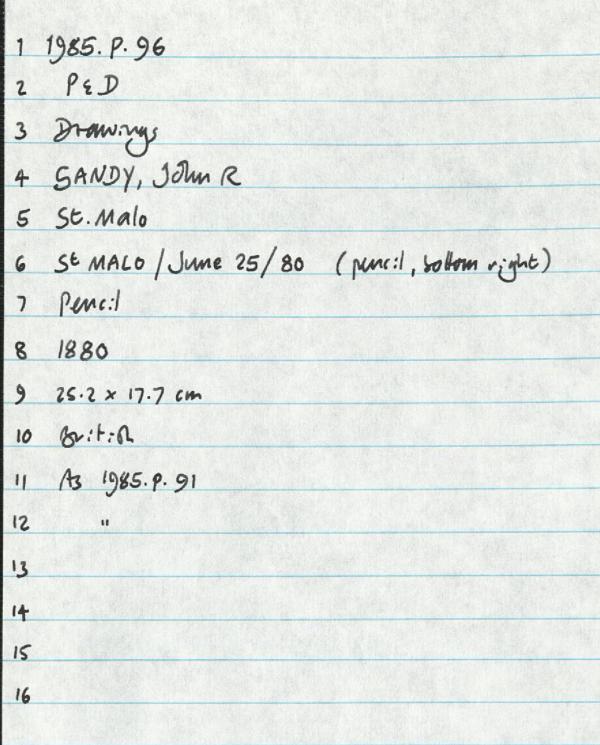 1 1985. P. 96
2 P & D
3 Drawings
4 SANDY, John R
5 St. Malo
6 St MALO / June 25/80 (pencil, bottom right)
7 Pencil
8 1880
9 25.2 x 17.7 cm
10 British
11 As 1985. P. 91
12 "
13
14
15
16